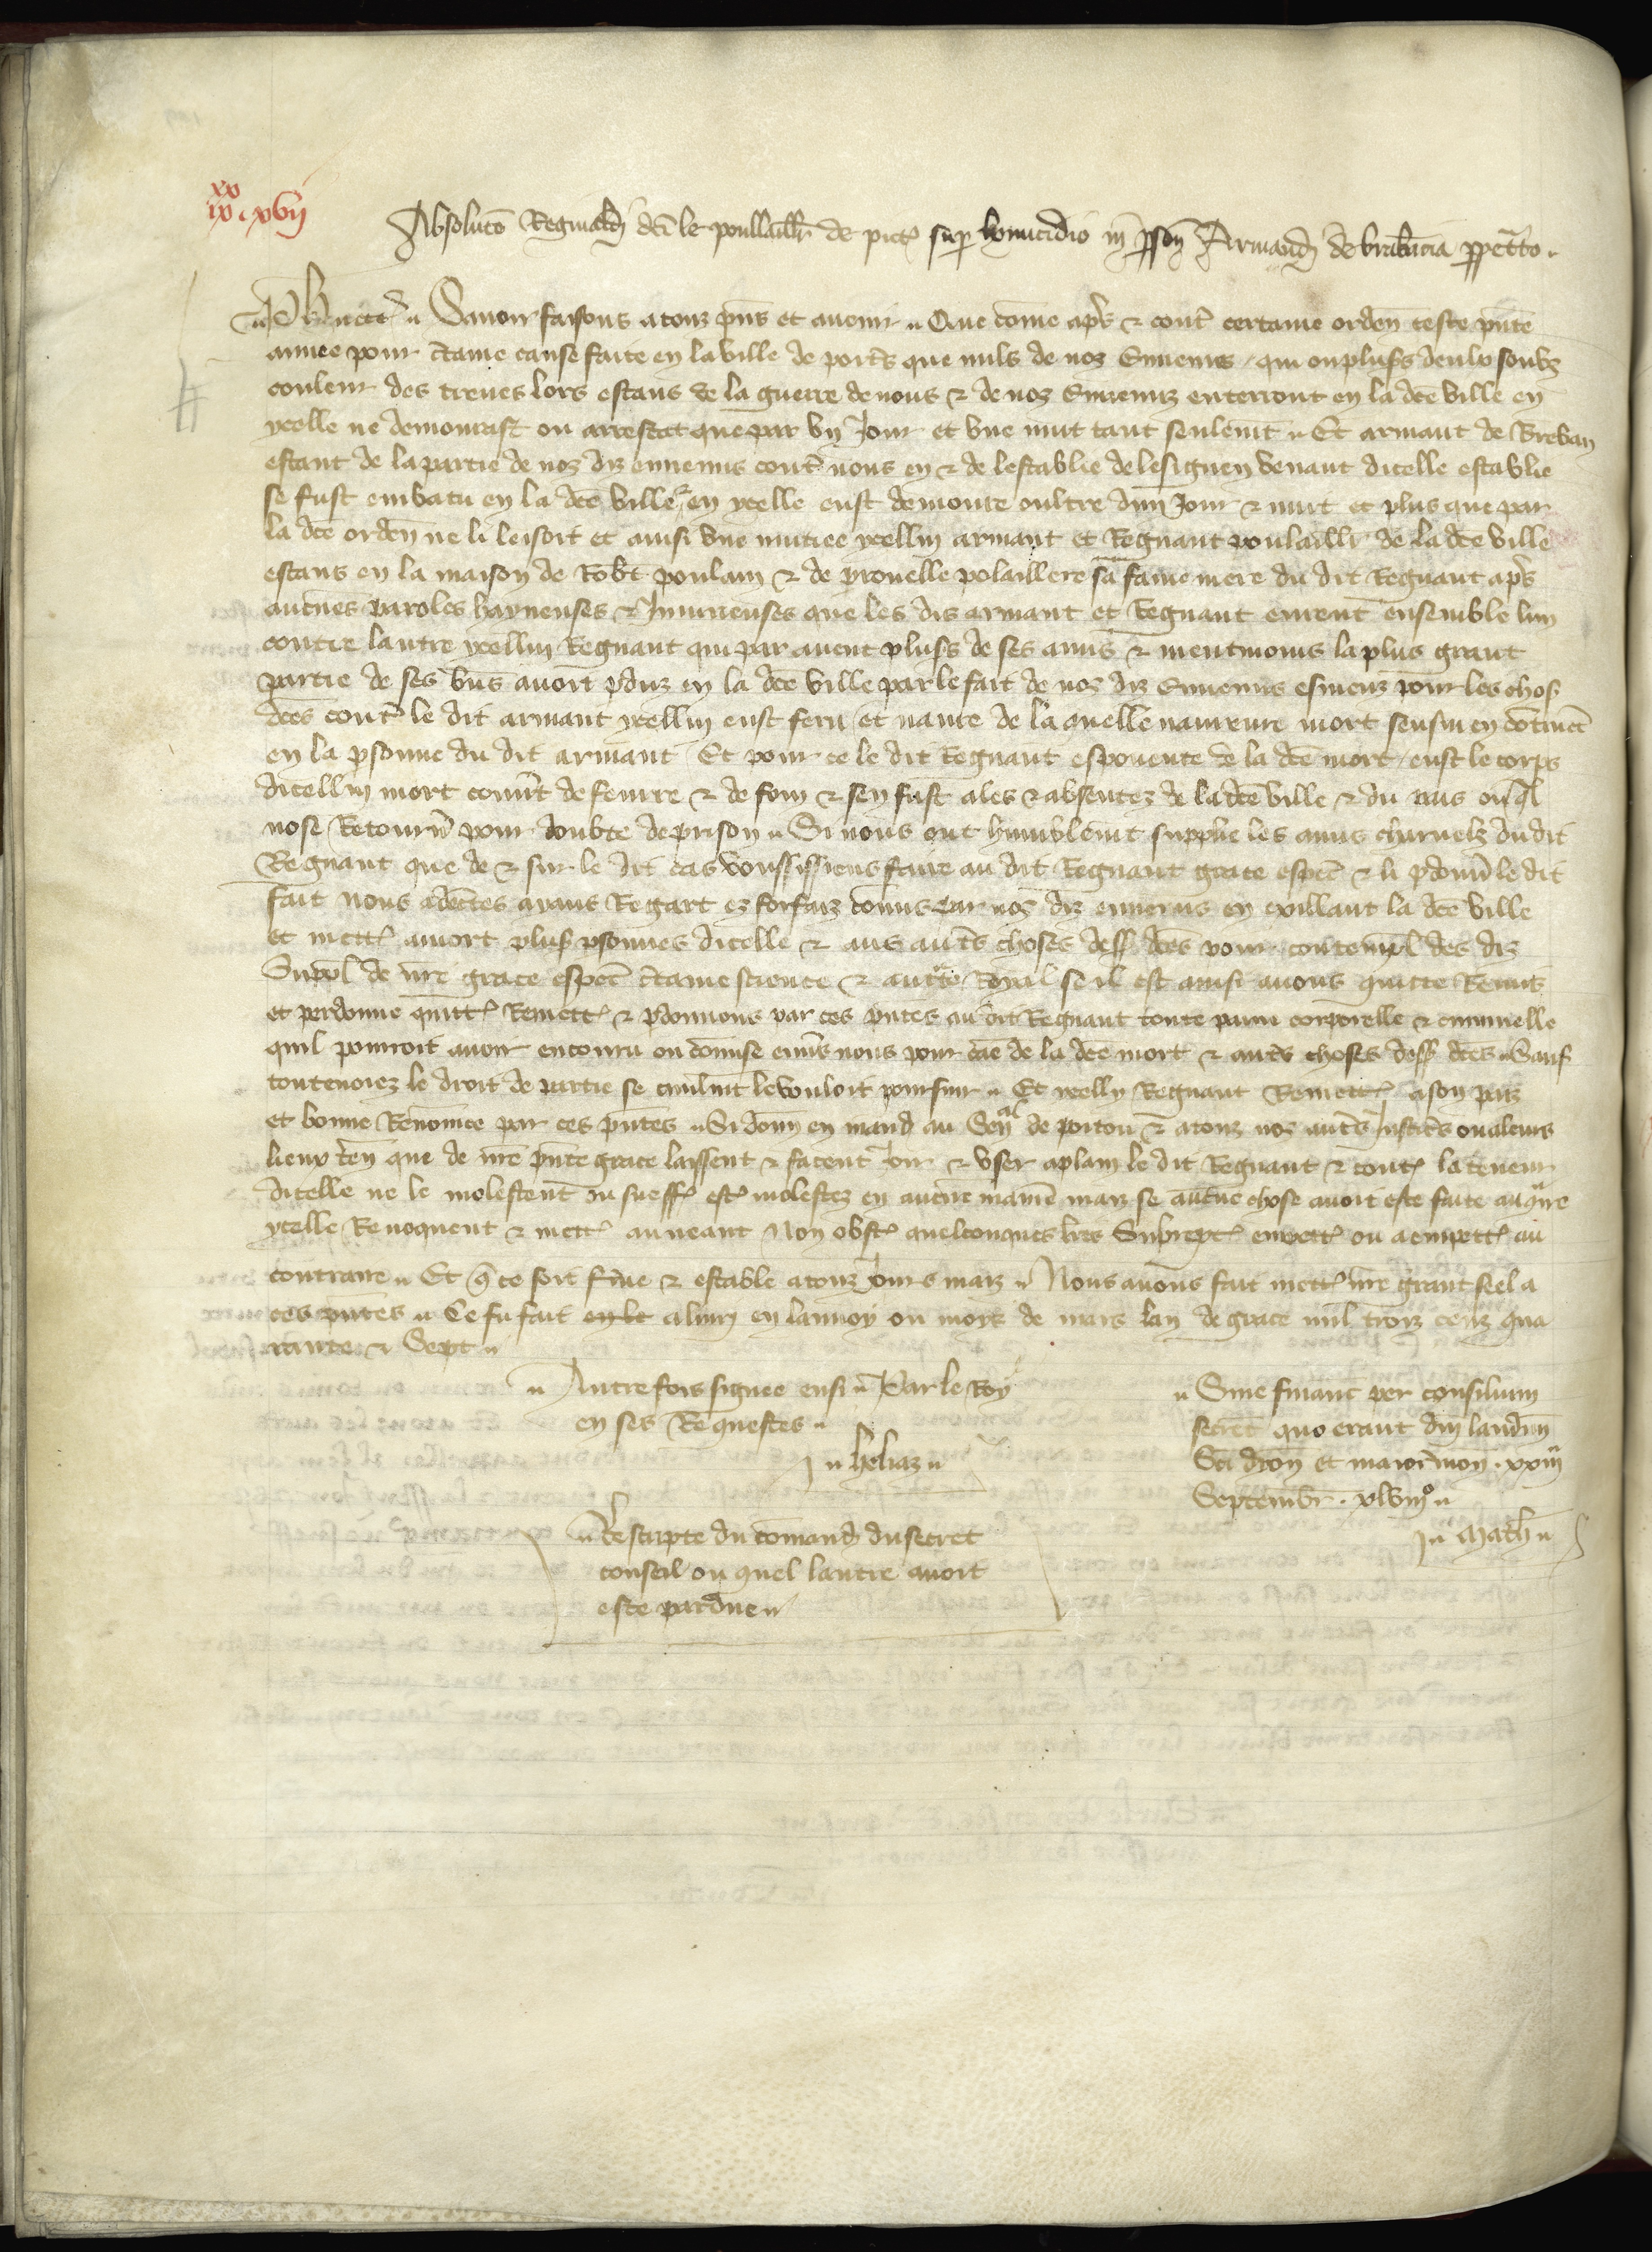 xx
ix. xvij
Absoluco Reginaldi dci le poullaillr de pict sup homicidio in psona Armandi de brabancia ppetrato.
Ph etc Savoir faisons a touz pns et avenir Que come apres & contre certaine orden ceste pnte
annee pour ctaine cause faite en la ville de poitrs que nuls de noz Ennemis qui ou plusrs deulx soubz
couleur des treues lors estans de la guerre de nous & de noz Ennemiz enterront en la dce ville en
ycelle ne demourast ou arrestat que par vn Jour et vne nuit tant seulemt Et armant de Breban
estant de la partie de noz diz ennemis contre nous en & de lestablie de lesignen venant dicelle establie
se fust embatu en la dce ville & en ycelle eust demoure oultre dun Jour & nuit et plus que par
la dce orden ne li leisoit et ainsi vne nuitiee ycellui armant et Regnaut poulaillr de la dce ville
estans en la maison de Robt poulain & de peronelle polaillere sa fame mere du dit Regnaut apres
aucunes paroles haynenses & Iniurieuses que les dis armant et Regnaut eurent ensemble lun
contre lautre ycellui Regnaut qui par avent plusrs de ses amis & meutmoins la plus grant
partie de ses biens avoit pduz en la dce ville par le fait de noz diz Ennemis esmeuz pour les chos
dces contre le dit armant ycellui eust feru et navre de la quelle navreure mort sensui en
en la psonne du dit armant Et pour ce le dit Regnaut espouente de la dce mort eust le corps
dicellui mort couvrt de feurre & de foin & sen fust ales & absentez de la dce ville & du pais ouql
nose Retournr pour doubte de prison Si nous ont humblemt supplie les amis charnelz du dit
Regnaut que de & sur le dit cas voussissiens faire au dit Regnaut grace especl & li pdonnr le dit
fait Nous adcertes aians Regart ez forfaiz comis par noz diz ennemis en exillant la dce ville
et mettre a mort plusrs psonnes dicelle & aus autrs choses dess dces pour contempl des diz
Suppl de nre grace especl ctaine science & aucte Royal se il est ainsi avons quitte Remis
et perdonne quittons Remettons & pdonnons par ces pntes au dit Regnaut toute paine corporelle & criminelle
quil pourroit avoir encouru ou comise envrs nous pour cae de la dce mort & autrs choses dess dces Sauf
toutevoiez le droit de partie se civilmt le vouloit poursuir Et ycelly Regnaut Remettons a son pais
et bonne Renomee par ces pntes Si donn en mand au Sen de poitou & a touz noz autrs Justicrs ou a leurs
lieux ten que de nre pnte grace laissent & facent joir & vser a plain le dit Regnaut & contre la teneur
dicelle ne le molestent ou sueffrent estre molestez en aucune manie maiz se aucune chose avoit este faite au contre
ycelle Revoquent & mettent au neant Non obst quelconques lres Subrept empetrees ou a empetrer au
contraire Et que ce soit ferme & estable a touz jours maiz Nous avons fait mettre nre grant seel a
ces pntes Ce fu fait en le a liury en lannoy ou moys de mars lan de grace mil troiz cenz qua
rante & Sept
Autrefois signee ensi Par le Roy
en ses Requestes
heliaz
Rescripte du comand du secret
conseil ou quel lautre avoit
este pardue
Sine finant per consilium
secret quo erant dni laudun
Sci dion et maiorimon. xxiij
Septembr. xlviijo
Math